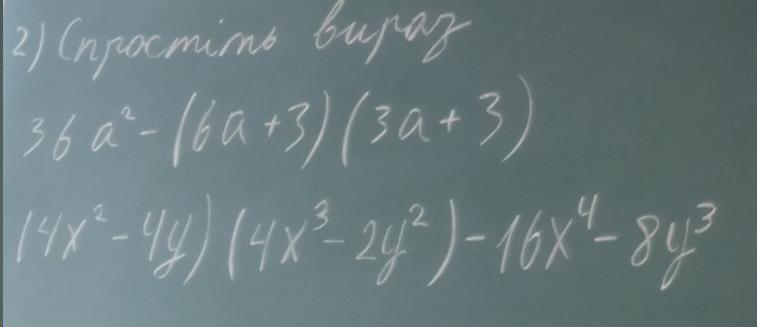 2) Спростіть вираз
36a² - (6a + 3)(3a + 3)
(4x² - 4y)(4x³ - 2y²) - 16x⁴ - 8y³